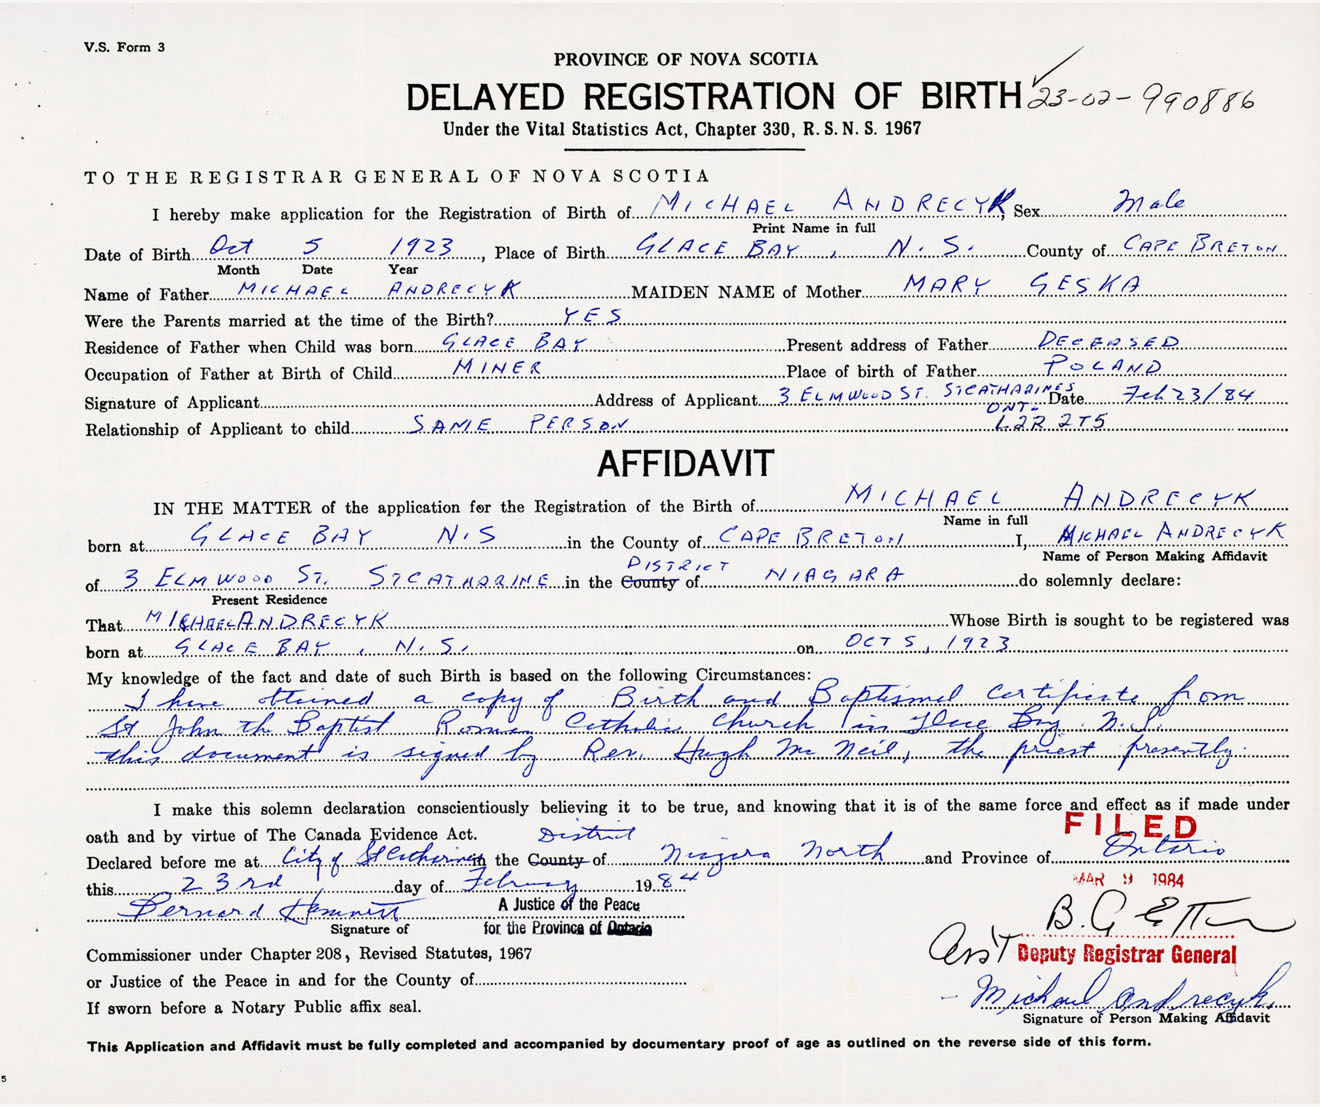 V.S. Form 3
PROVINCE OF NOVA SCOTIA
DELAYED REGISTRATION OF BIRTH 23-02-990886
Under the Vital Statistics Act, Chapter 330, R.S.N.S. 1967
TO THE REGISTRAR GENERAL OF NOVA SCOTIA
I hereby make application for the Registration of Birth of MICHAEL ANDRECYK, Sex Male
Print Name in full
Date of Birth Oct 5 1923, Place of Birth GLACE BAY, N.S. County of CAPE BRETON
Month Date Year
Name of Father MICHAEL ANDRECYK MAIDEN NAME of Mother MARY GESKA
Were the Parents married at the time of the Birth? YES
Residence of Father when Child was born GLACE BAY Present address of Father DECEASED
Occupation of Father at Birth of Child MINER Place of birth of Father POLAND
Signature of Applicant Address of Applicant 3 ELMWOOD ST. ST CATHARINES ONT. Date Feb 23/84
Relationship of Applicant to child SAME PERSON L2R 2T5
AFFIDAVIT
IN THE MATTER of the application for the Registration of the Birth of MICHAEL ANDRECYK
Name in full
born at GLACE BAY N.S in the County of CAPE BRETON I, MICHAEL ANDRECYK
Name of Person Making Affidavit
of 3 ELMWOOD ST. ST CATHARINE in the County DISTRICT of NIAGARA do solemnly declare:
Present Residence
That MICHAEL ANDRECYK Whose Birth is sought to be registered was
born at GLACE BAY, N.S. on OCT 5, 1923
My knowledge of the fact and date of such Birth is based on the following Circumstances:
I have obtained a copy of Birth and Baptismal Certificate from
St John the Baptist Roman Catholic Church in Glace Bay N.S.
this document is signed by Rev. Hugh McNeil, the priest presently.
I make this solemn declaration conscientiously believing it to be true, and knowing that it is of the same force and effect as if made under
oath and by virtue of The Canada Evidence Act.
FILED
Declared before me at City of St Catharines in the County District of Niagara North and Province of Ontario
this 23rd day of February 1984
MAR 9 1984
Bernard
A Justice of the Peace
for the Province of Ontario
Signature of
Commissioner under Chapter 208, Revised Statutes, 1967
Ass't Deputy Registrar General
or Justice of the Peace in and for the County of
Michael Andrecyk
If sworn before a Notary Public affix seal.
Signature of Person Making Affidavit
This Application and Affidavit must be fully completed and accompanied by documentary proof of age as outlined on the reverse side of this form.
5